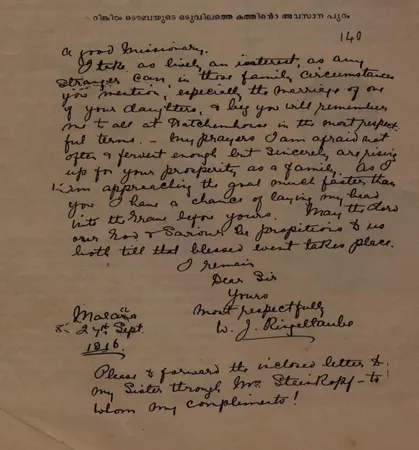 റിങ്കിൾ ടൌബയുടെ ഒടുവിലത്തെ കത്തിൻ്റെ അവസാന പുറം
140
a good Missionary.
I take as lively an interest, as any
stranger can, in those family circumstances
you mention, especially the marriage of one
of your daughters, & beg you will remember
me to all at Hatchenhouse in the most respect-
ful terms. - My prayers I am afraid not
often & fervent enough but sincerely are rising
up for your prosperity as a family. As I
am approaching the goal much faster than
you I have a chance of laying my head
into the grave before yours. May the Lord
our God & Saviour be propitious to us
both till that blessed event takes place.
I remain
Dear Sir
Yours
most respectfully
W. J. Ringeltaube
Malacca
27th Sept.
1816.
Please to forward the inclosed letter to
my Sister through Mr. Steinkopf - to
whom my compliments!